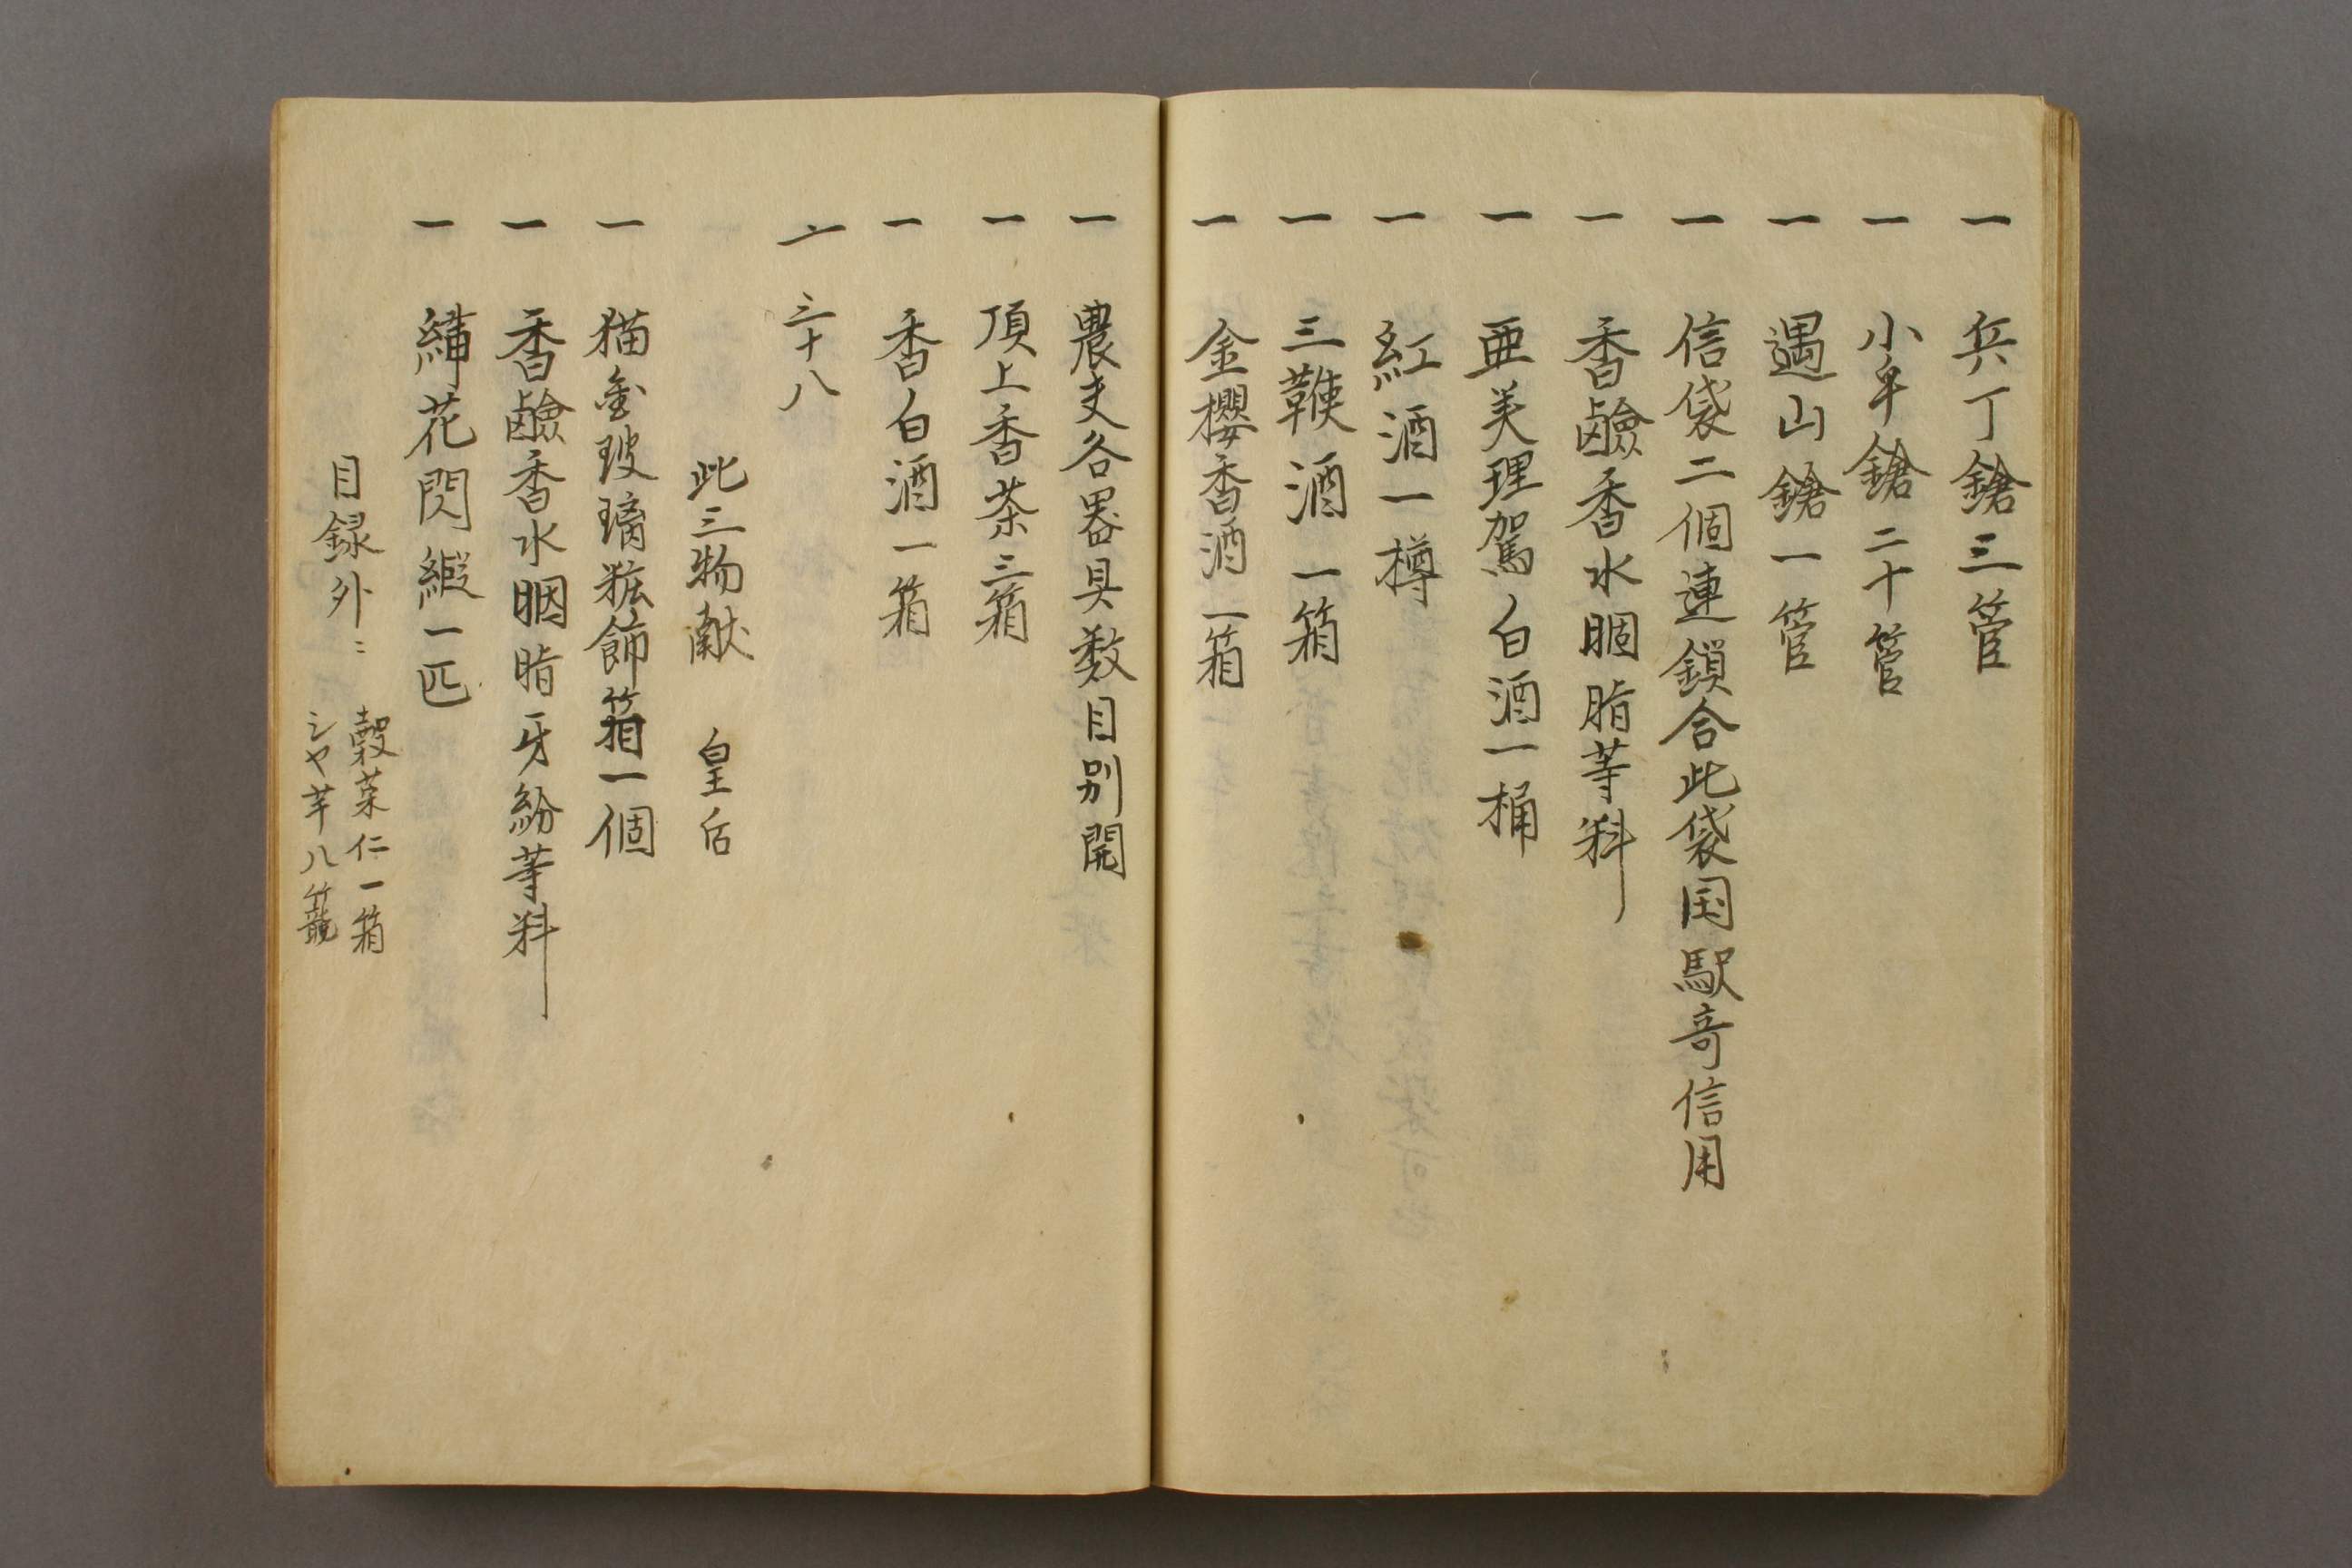 一 兵丁鎗三管
一 小牟鎗二十管
一 遇山鎗一管
一 信袋二個連鎖合此袋国駅寄信用
一 香鹸香水胭脂等料
一 亜美理駕白酒一桶
一 紅酒一樽
一 三鞭酒一箱
一 金櫻香酒一箱
一 農夫各器具数目別開
一 頂上香茶三箱
一 香白酒一箱
一 三十八
此三物献 皇后
一 猫金玻璃粧飾箱一個
一 香鹸香水胭脂牙紛等料
一 繡花閃緞一匹
目録外ニ
穀菜仁一箱
シヤ芋八籠